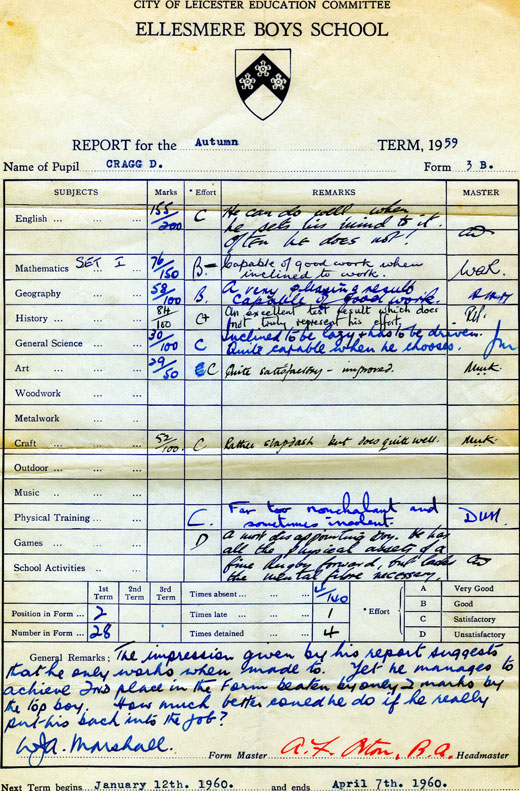 CITY OF LEICESTER EDUCATION COMMITTEE
ELLESMERE BOYS SCHOOL
REPORT for the Autumn TERM, 1959
Name of Pupil CRAGG D. Form 3 B.
SUBJECTS Marks * Effort REMARKS MASTER
English ... ... 155/200 C He can do well when
he sets his mind to it.
Often he does not!
Mathematics SET I 76/150 B- Capable of good work when
inclined to work.
Geography ... ... 58/100 B. A very pleasing result
capable of good work.
History ... ... 84/100 C+ An excellent test result which does
not truly represent his effort.
General Science ... 30/100 C Inclined to be lazy & has to be driven.
Quite capable when he chooses.
Art ... ... 29/50 C Quite satisfactory - improved.
Woodwork ... ...
Metalwork ... ...
Craft ... ... 52/100. C Rather slapdash but does quite well.
Outdoor ... ...
Music ... ...
Physical Training ... C. Far too nonchalant and
sometimes insolent.
Games ... ... D A most disappointing boy. He has
all the physical assets of a
School Activities ... fine Rugby forward, but lacks
the mental fibre necessary.
1st Term 2nd Term 3rd Term
Position in Form ... 2
Number in Form ... 28
Times absent ... /140
Times late ... 1
Times detained ... 4
* Effort
A Very Good
B Good
C Satisfactory
D Unsatisfactory
General Remarks; The impression given by his report suggests
that he only works when made to. Yet he manages to
achieve 2nd place in the Form beaten by only 2 marks by
the top boy. How much better could he do if he really
put his back into the job?
W.A. Marshall. Form Master A. F. Orton, B.A. Headmaster
Next Term begins January 12th. 1960. and ends April 7th. 1960.